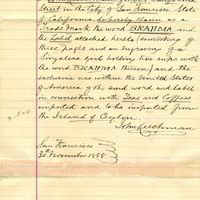 Street in the City of San Francisco, State
of California do hereby claim as a
Trade Mark the word BRAHMA and
the Label attached hereto (consisting of
three pages and an engraving of a
Singalese girl holding two cups with
the word BRAHMA thereon) and the
exclusive use within the United States
of America of the said word and label
in connection with Teas and Coffees
imported and to be imported from
the Island of Ceylon.
San Francisco
30 November 1888